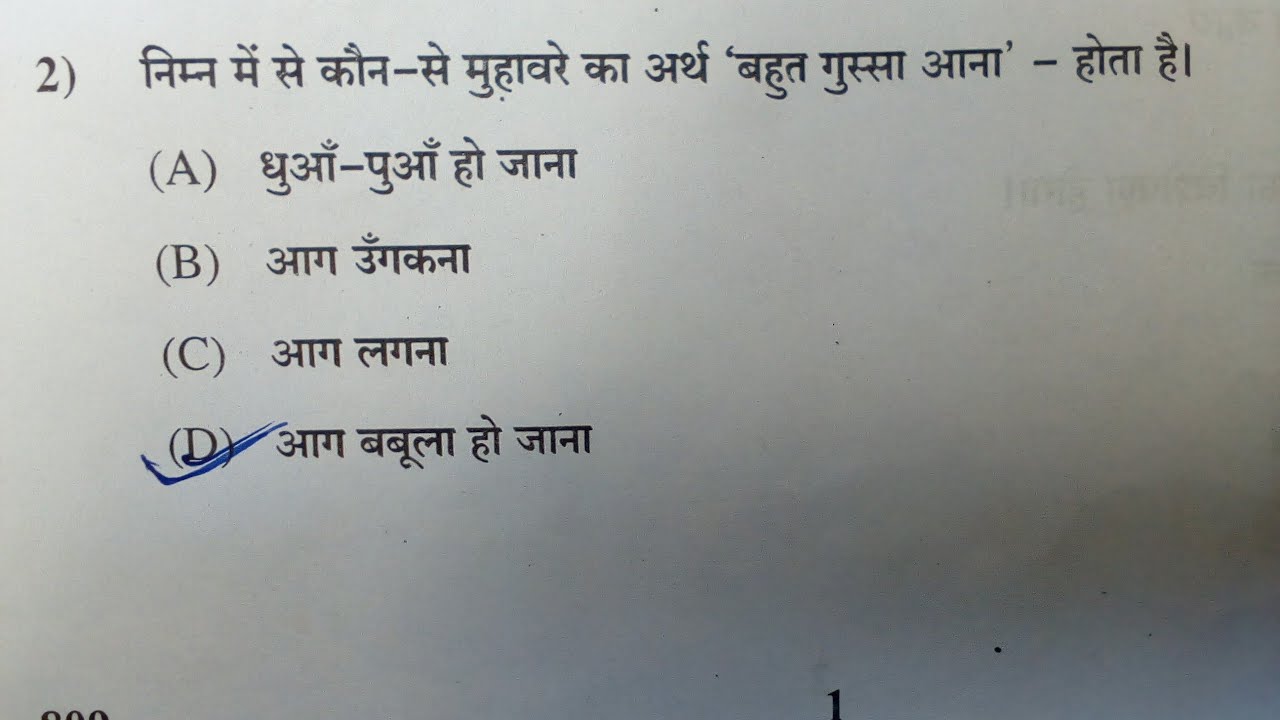 2) निम्न में से कौन-से मुहावरे का अर्थ 'बहुत गुस्सा आना' – होता है।
(A) धुआँ-पुआँ हो जाना
(B) आग उँगकना
(C) आग लगना
(D) आग बबूला हो जाना
1